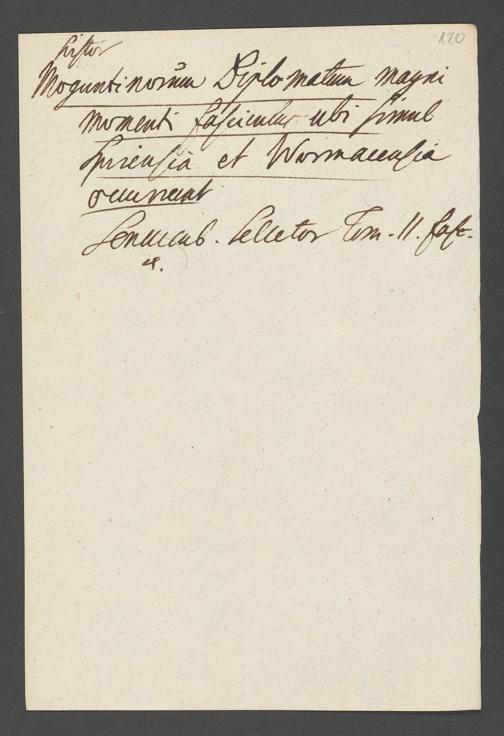 120
Histor
Moguntinorum Diplomatum magni
momenti fasciculus ubi simul
Spirensia et Wormacensia
occurrunt
Senckenb. Selector Tom. II. fasc.
4.